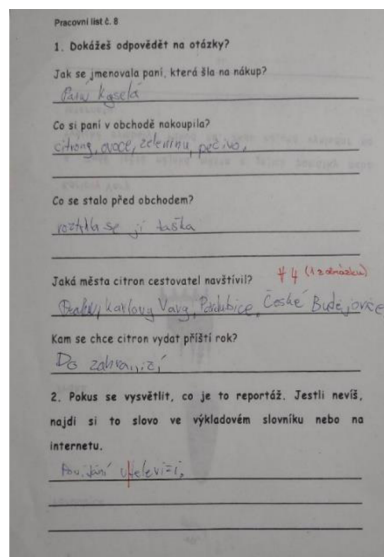 Pracovní list č. 8
1. Dokážeš odpovědět na otázky?
Jak se jmenovala paní, která šla na nákup?
Paní Kyselá
Co si paní v obchodě nakoupila?
citrony, ovoce, zeleninu, pečivo,
Co se stalo před obchodem?
roztrhla se jí taška
Jaká města citron cestovatel navštívil?
4 (1 z obrázku)
Karlovy Vary, Pardubice, České Budějovice
Kam se chce citron vydat příští rok?
Do zahraničí
2. Pokus se vysvětlit, co je to reportáž. Jestli nevíš,
najdi si to slovo ve výkladovém slovníku nebo na
internetu.
v televizi,